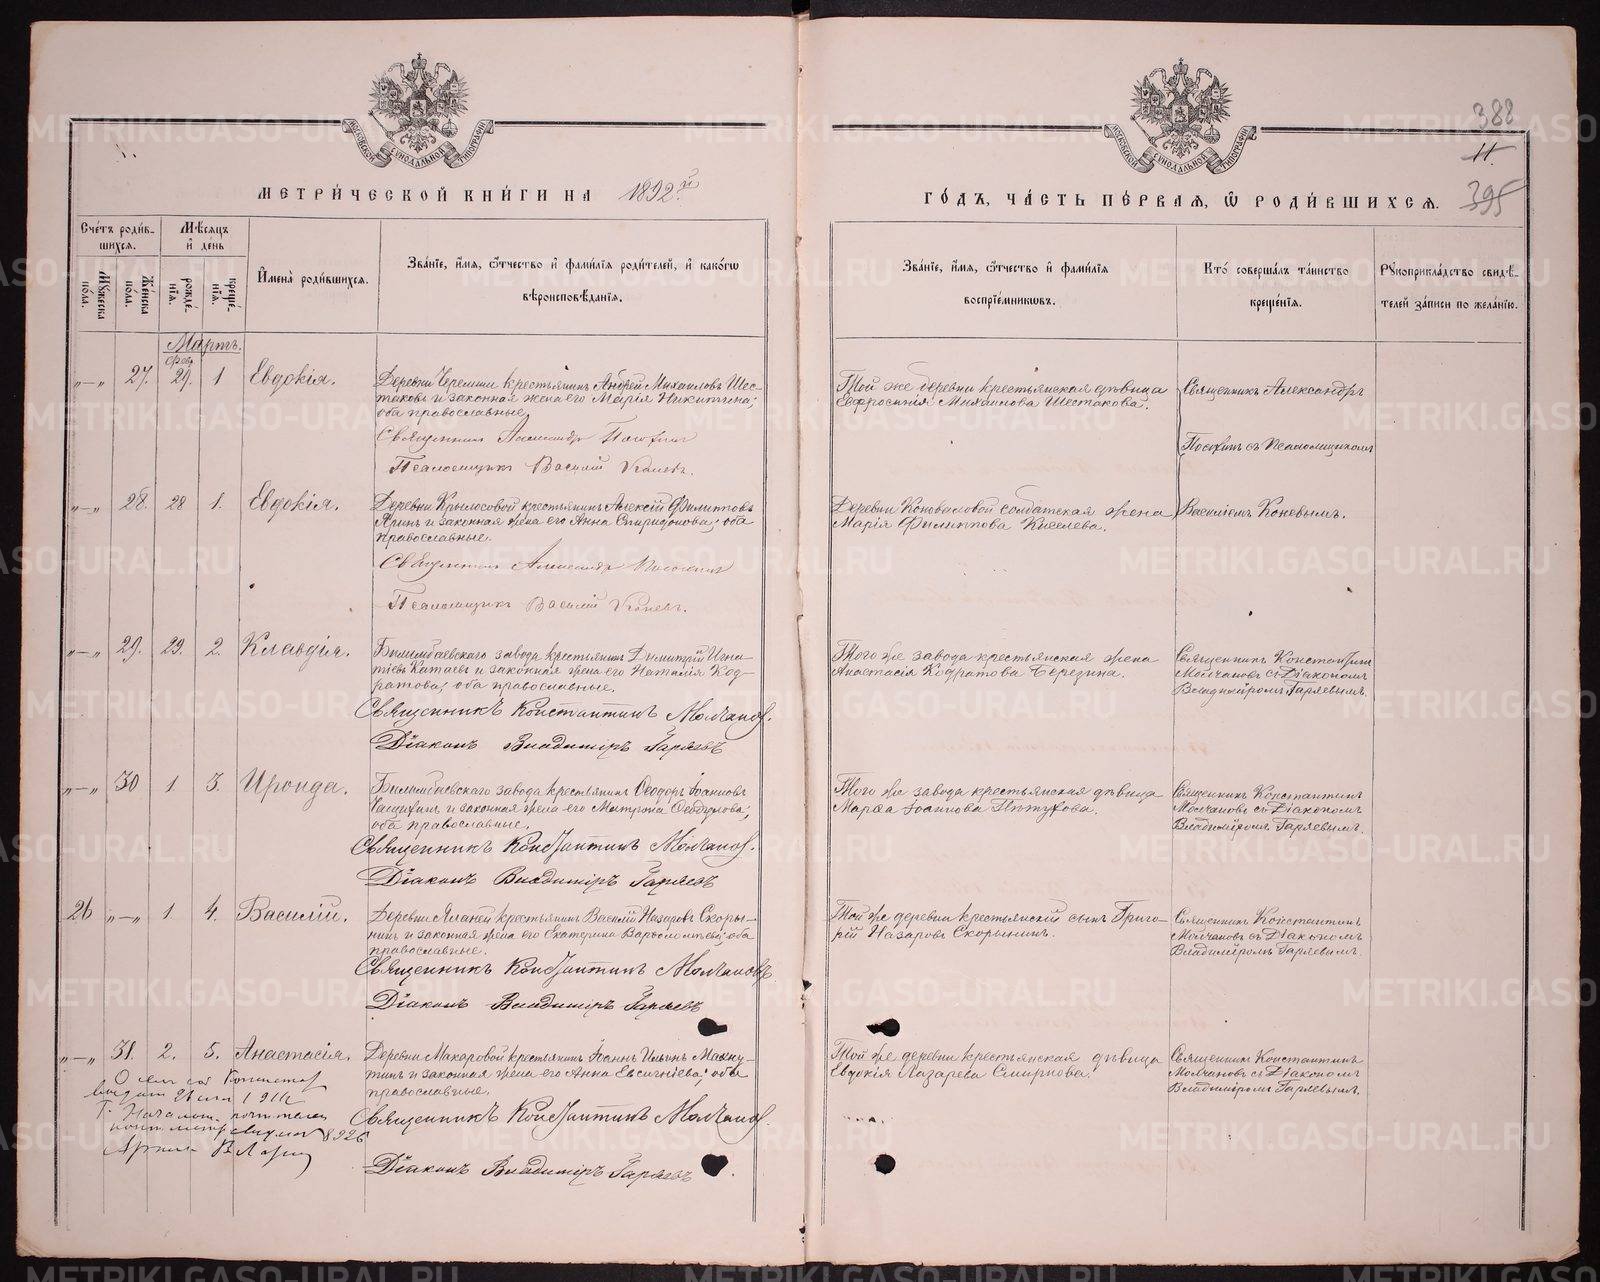 МОСКОВСКОЙ СѴНОДАЛЬНОЙ ТИПОГРАФІИ
МОСКОВСКОЙ СѴНОДАЛЬНОЙ ТИПОГРАФІИ
388
11
395
МЕТРИ́ЧЕСКОЙ КНИ́ГИ НА 1892.й
ГО́ДЪ, ЧА́СТЬ ПЕ́РВАЯ, Ѽ РОДИ́ВШИХСЯ.
Сче́тъ роди́в-
шихся.
Мꙋ́жеска по́ла.
Же́нска по́ла.
Мѣ́сяцъ
и҆ де́нь
рожде́нїя.
креще́нїя.
И҆мена̀ роди́вшихся.
Зва́нїе, и҆́мя, ѻ҆́тчество и҆ фами́лїя роди́телей, и҆ како́гѡ
вѣроисповѣ́данїя.
Зва́нїе, и҆́мя, ѻ҆́тчество и҆ фами́лїя
воспрїе́мниковъ.
Кто̀ соверша́лъ та́инство
креще́нїя.
Рꙋкоприкла́дство свидѣ́-
телей за́писи по жела́нїю.
Мартъ.
Фев.
„—„ 27. 29. 1 Евдокія.
Деревни Черемши крестьянинъ Андрей Михаиловъ Шес-
таковъ и законная жена его Марія Никитина;
оба православные
Священникъ Александръ
Псаломщикъ Василій Коневъ.
Той же деревни крестьянская дѣвица
Евфросинія Михаилова Шестакова.
Священникъ Александръ
съ Псаломщикомъ
„—„ 28. 28 1. Евдокія.
Деревни Крылосовой крестьянинъ Алексій Филипповъ
и законная жена его Анна Спиридонова; оба
православные.
Священникъ Александръ
Псаломщикъ Василій Коневъ.
Деревни Коноваловой солдатская жена
Марія Филиппова Киселева.
Василіемъ Коневымъ.
„—„ 29. 29. 2. Клавдія.
Билимбаевскаго завода крестьянинъ Димитрій Игна-
тіевъ Катаевъ и законная жена его Наталія Код-
ратова; оба православные.
Священникъ Константинъ Молчановъ.
Діаконъ Владиміръ Гаряевъ
Того же завода крестьянская жена
Анастасія Кодратова Березина.
Священникъ Константинъ
Молчановъ съ Діакономъ
Владиміромъ Гаряевымъ.
„—„ 30 1 3. Ираида.
Билимбаевскаго завода крестьянинъ Ѳеодоръ Іоанновъ
и законная жена его Матрона Ѳеодулова;
оба православные.
Священникъ Константинъ Молчановъ.
Діаконъ Владиміръ Гаряевъ
Того же завода крестьянская дѣвица
Марѳа Іоаннова Пѣтухова.
Священникъ Константинъ
Молчановъ съ Діакономъ
Владиміромъ Гаряевымъ.
26 „—„ 1. 4. Василій.
Деревни крестьянинъ Василій Назаровъ Скоры-
нинъ и законная жена его Екатерина Варѳоломѣева; оба
православные.
Священникъ Константинъ Молчановъ
Діаконъ Владиміръ Гаряевъ
Той же деревни крестьянскій сынъ Григо-
рій Назаровъ Скорынинъ.
Священникъ Константинъ
Молчановъ съ Діакономъ
Владиміромъ Гаряевымъ.
„—„ 31. 2. 5. Анастасія.
Деревни Макаровой крестьянинъ Іоаннъ Ильинъ Махну-
тинъ и законная жена его Анна Евсигніева; оба
православные.
Священникъ Константинъ Молчановъ.
Діаконъ Владиміръ Гаряевъ.
Той же деревни крестьянская дѣвица
Евдокія Лазарева Смирнова.
Священникъ Константинъ
Молчановъ съ Діакономъ
Владиміромъ Гаряевымъ.
METRIKI.GASO-URAL.RU